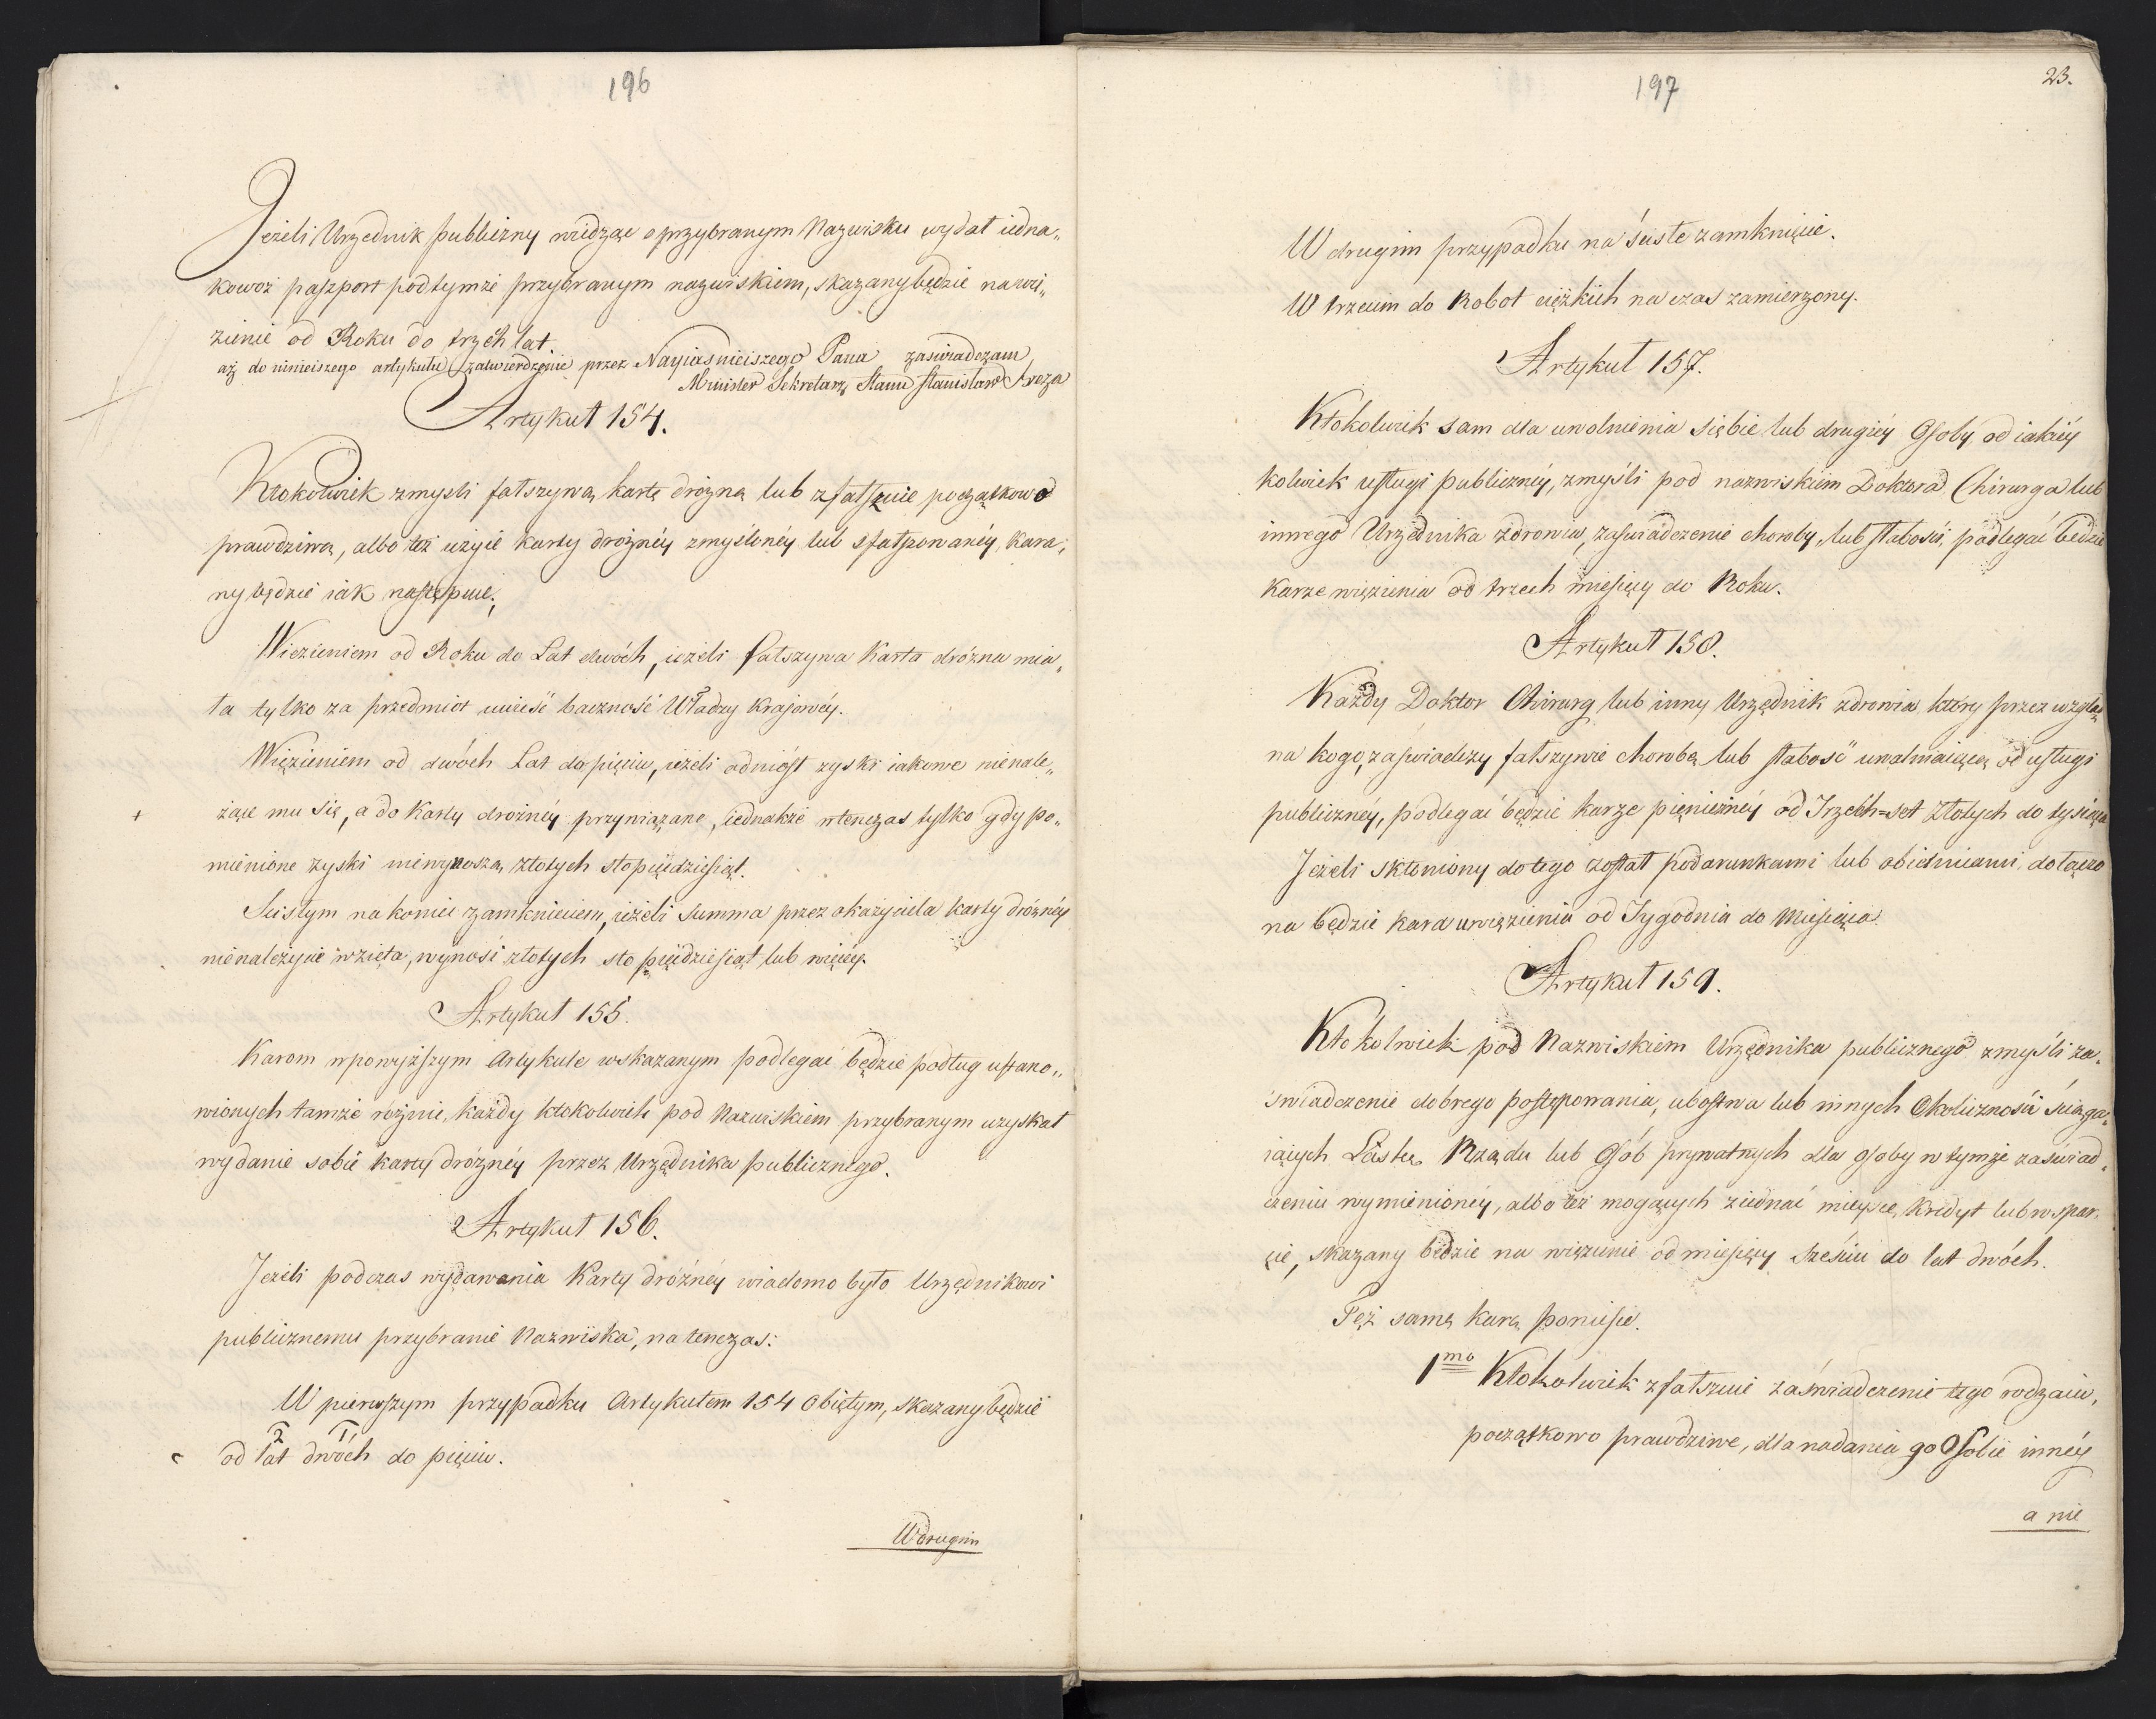 196
Jeżeli Urzędnik publiczny wiedząc o przybranym Nazwisku wydał iedna„
kowoż paszport pod tymże przybranym nazwiskiem, skazany będzie na wię„
zienie od Roku do trzech lat.
aż do ninieiszego artykułu zatwierdzenie przez Nayiasnieiszego Pana zaswiadczam
Minister Sekretarz Stanu Stanisław Breza
Artykuł 154.
Ktokolwiek zmysli fałszywą kartę drożną lub zfałszuie początkowo
prawdziwą, albo też użyie karty drożnéy zmyślonéy lub sfałszowanéy, kara„
ny będzie iak następuie;
Więzieniem od Roku do Lat dwóch, ieżeli fałszywa Karta dróżna mia„
ła tylko za przedmiot uwieść baczność Władzy Krajowéy.
Więzieniem od dwóch Lat do pięciu, ieżeli odniósł zyski iakowe nienale„
+ żące mu się, a do Karty drożnéy przywiązane, iednakże wtenczas tylko gdy po„
mienione zyski niewynoszą złotych sto pięćdziesiąt.
Scisłym na koniec zamknięciem, ieżeli Summa przez okaziciela karty dróżnéy
nienależycie wzięta, wynosi złotych sto pięćdziesiąt lub więcéy.
Artykuł 155.
Karom w powyższym Artykule wskazanym podlegać będzie podług ustano„
wionych tamże różnic, każdy ktokolwiek pod Nazwiskiem przybranym uzyskał
wydanie sobie karty dróżnéy przez Urzędnika publicznego.
Artykuł 156.
Jeżeli podczas wydawania Karty dróżnéy wiadomo było Urzędnikowi
publicznemu przybranie Nazwiska, na tenczas:
W pierwszym przypadku Artykułem 154 obiętym, skazany będzie
2 1
od lat dwóch do pięciu.
W drugim
197
23.
W drugim przypadku na ścisłe zamknięcie.
W trzecim do Robot ciężkich na czas zamierzony.
Artykuł 157.
Ktokolwiek sam dla uwolnienia siebie lub drugiéy Osoby od iakiéy
kolwiek usługi publicznéy, zmyśli pod nazwiskiem Doktora Chirurga lub
innego Urzędnika zdrowia, zaswiadczenie choroby, lub słabości, podlegać będzie
karze więzienia od trzech miesięcy do Roku.
Artykuł 158.
Każdy Doktor Chirurg lub inny Urzędnik zdrowia który przez wzgląd
na kogo, zaswiadczy fałszywie chorobę lub słabość uwalniaiącą od usługi
publicznéy, podlegać będzie karze pieniężnéy od Trzech=set Złotych do tysiąca
Jeżeli skłoniony do tego został podarunkami lub obietnicami, dołączo
na będzie kara uwięzienia od Tygodnia do Miesiąca.
Artykuł 159.
Ktokolwiek pod Nazwiskiem Urzędnika publicznego zmyśli za„
swiadczenie dobrego postępowania, ubostwa lub innych Okoliczności ściąga„
iących Łaskę Rządu lub Osób prywatnych dla Osoby w tymże zaświad„
czeniu wymienionéy, albo też mogących ziednać mieysce, Kredyt lub wspar„
cie, skazany będzie na więzienie od miesięcy sześciu do lat dwóch.
Też samą karę poniesie.
1mo Ktokolwiek zfałszuie zaświadczenie tego rodzaiu,
początkowo prawdziwe, dla nadania go Osobie innéy
a nie